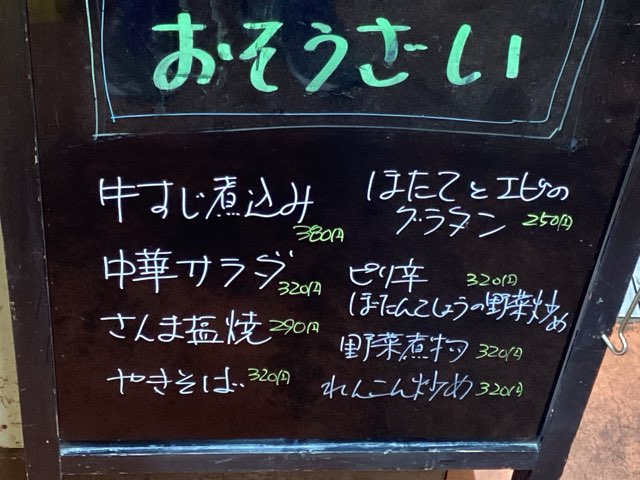 おそうざい
牛すじ煮込み
380円
中華サラダ
320円
さんま塩焼 290円
やきそば 320円
ほたてとエビの
グラタン 250円
ピリ辛 320円
ほたんこしょうの野菜炒め
野菜煮物 320円
れんこん炒め 320円